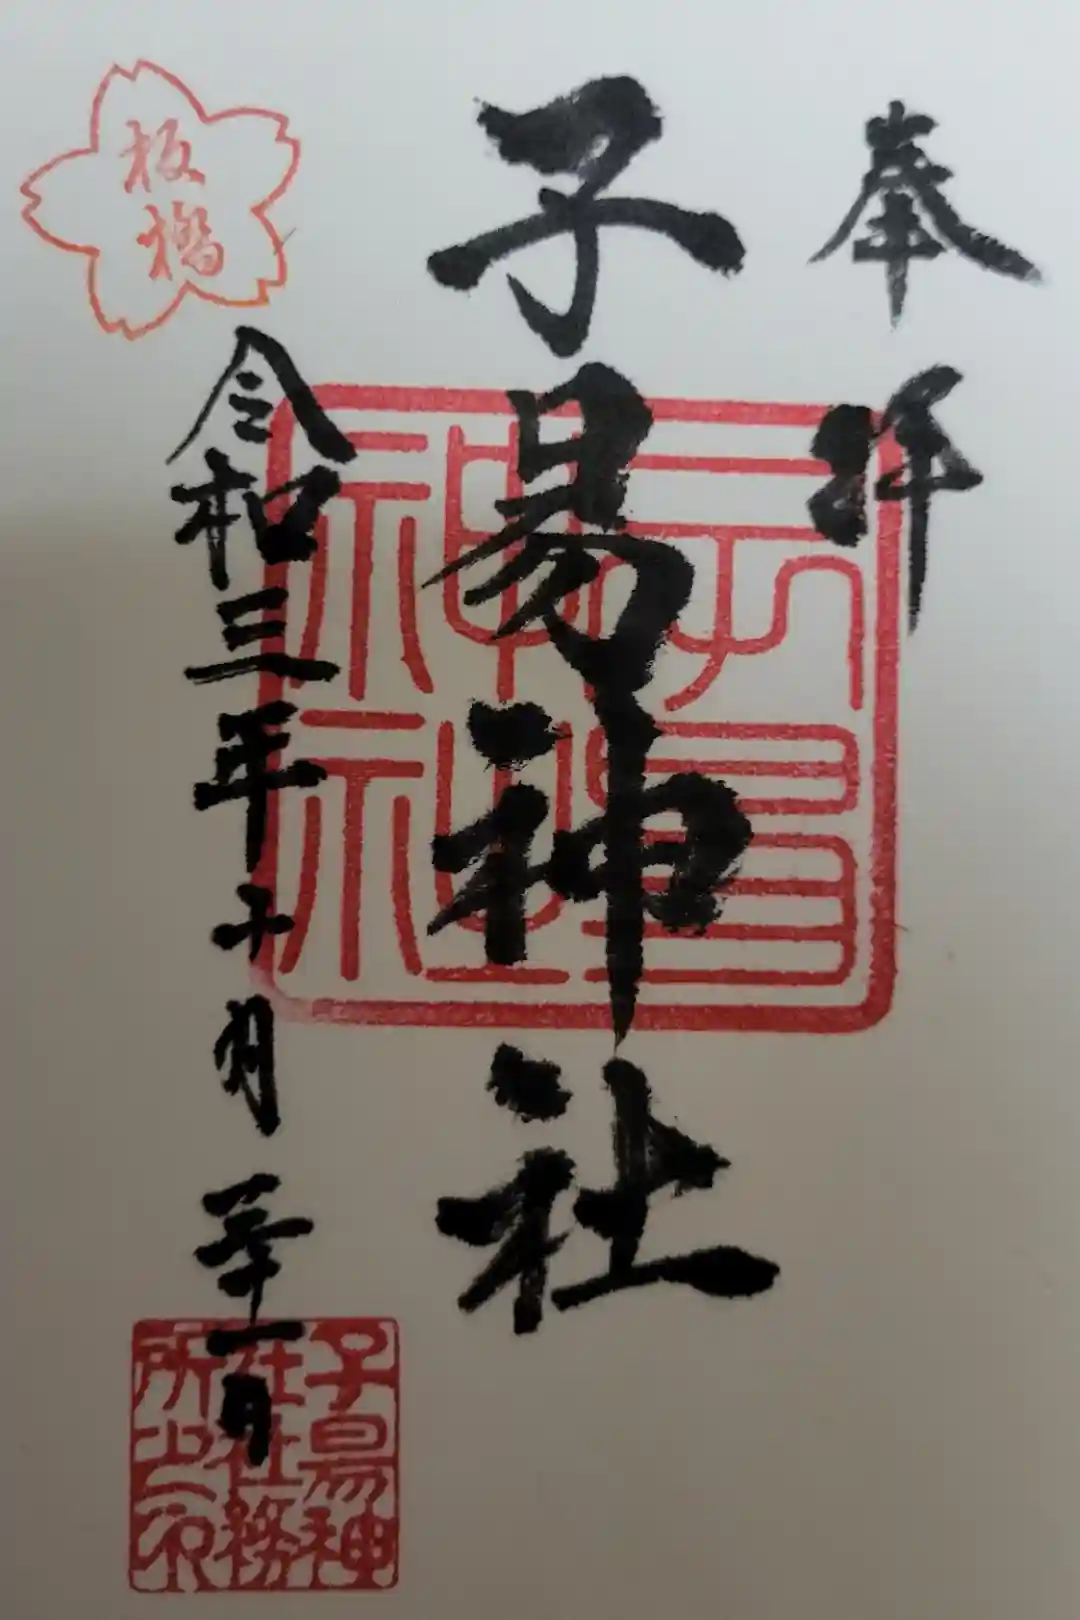 奉拝
子易神社
子易
神社
板橋
令和三年十月三十一日
子易神
社社務
所之印